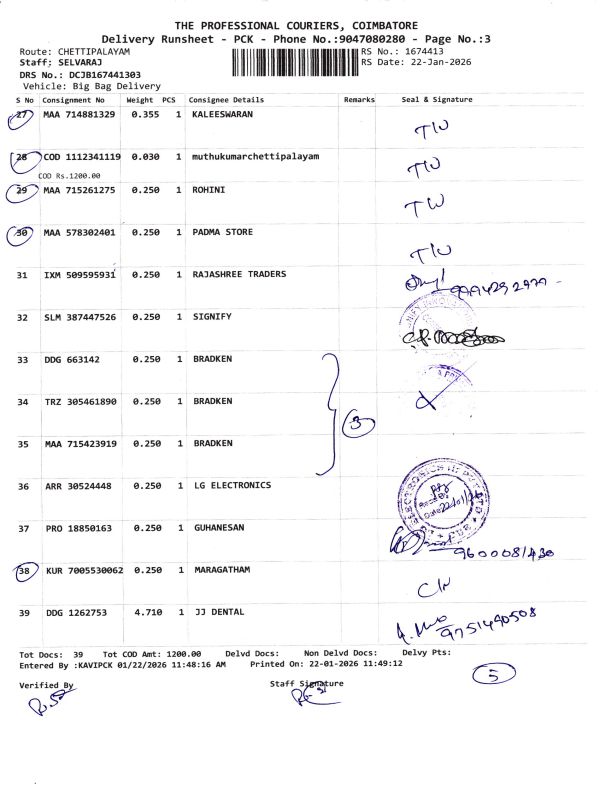 THE PROFESSIONAL COURIERS, COIMBATORE
Delivery Runsheet - PCK - Phone No.:9047080280 - Page No.:3
Route: CHETTIPALAYAM RS No.: 1674413
Staff: SELVARAJ RS Date: 22-Jan-2026
DRS No.: DCJB167441303
Vehicle: Big Bag Delivery
S No Consignment No Weight PCS Consignee Details Remarks Seal & Signature
27 MAA 714881329 0.355 1 KALEESWARAN
28 COD 1112341119 0.030 1 muthukumarchettipalayam
COD Rs.1200.00
29 MAA 715261275 0.250 1 ROHINI
30 MAA 578302401 0.250 1 PADMA STORE
31 IXM 509595931 0.250 1 RAJASHREE TRADERS
32 SLM 387447526 0.250 1 SIGNIFY
33 DDG 663142 0.250 1 BRADKEN
34 TRZ 305461890 0.250 1 BRADKEN
3
35 MAA 715423919 0.250 1 BRADKEN
36 ARR 30524448 0.250 1 LG ELECTRONICS
37 PRO 18850163 0.250 1 GUHANESAN
38 KUR 7005530062 0.250 1 MARAGATHAM
39 DDG 1262753 4.710 1 JJ DENTAL
9751490508
Tot Docs: 39 Tot COD Amt: 1200.00 Delvd Docs: Non Delvd Docs: Delvy Pts:
Entered By :KAVIPCK 01/22/2026 11:48:16 AM Printed On: 22-01-2026 11:49:12
5
Verified By Staff Signature